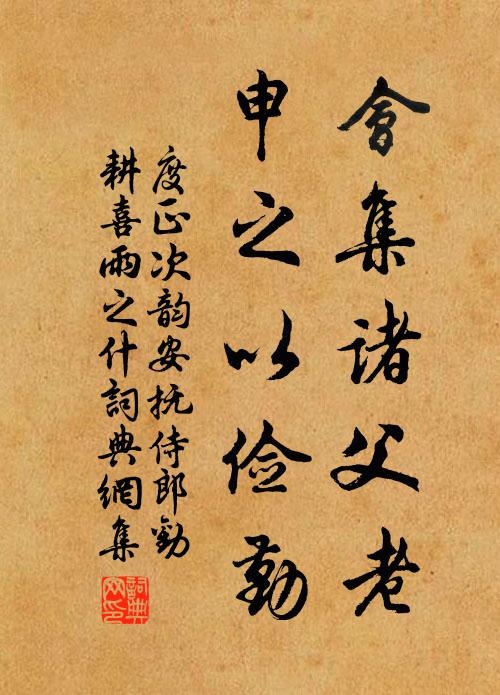 會集諸父老
申之以俭勤
度正次韵安抚侍郎勸
耕喜雨之什詞典網集
詞典網印